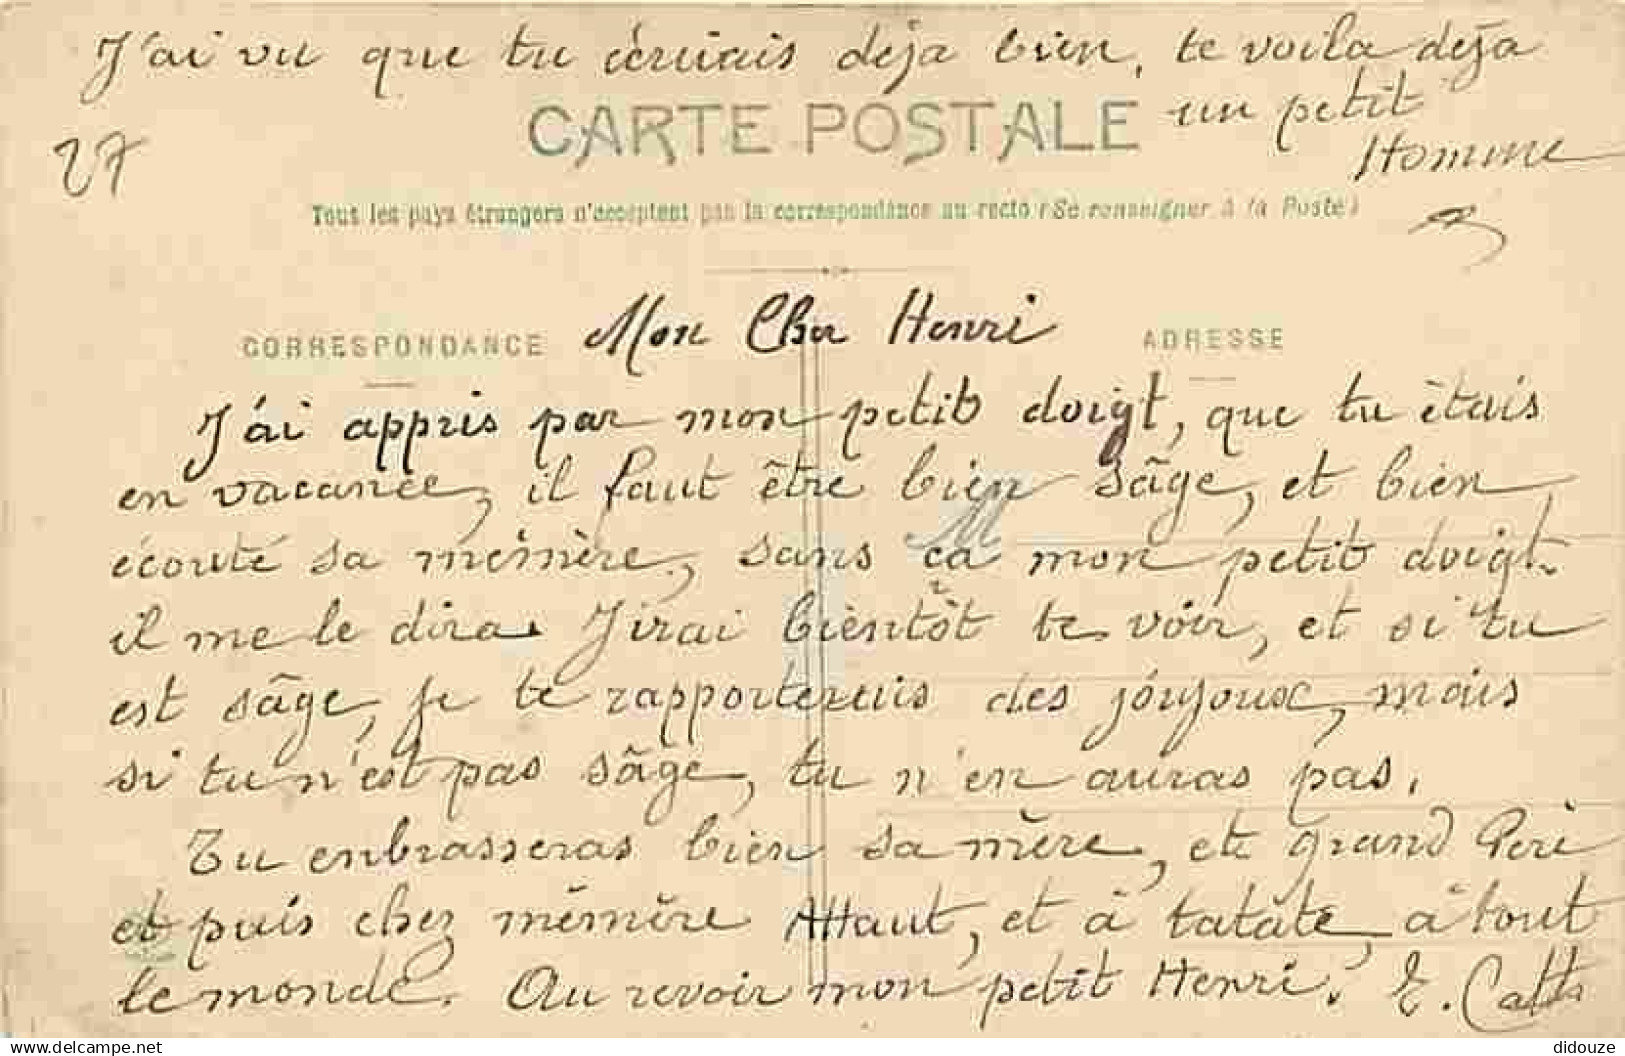 J'ai vu que tu écrivais deja bien, te voila deja
un petit
Homme
27
CARTE POSTALE
Tous les pays étrangers n'acceptent pas la correspondance au recto (Se renseigner à la Poste)
Mon Cher Henri
CORRESPONDANCE
ADRESSE
J'ai appris par mon petit doigt, que tu étais
en vacance, il faut être bien sâge, et bien
écouté sa mémère, sans ça mon petit doigt
il me le dira. J'irai bientôt te voir, et si tu
est sâge, je te rapporterais des joujoux, mais
si tu n'est pas sâge, tu n'en auras pas.
Tu enbrasseras bien sa mère, et grand Père
et puis chez mémère Attaut, et à tatate, à tout
le monde. Au revoir mon petit Henri. E.
M
Delcampe.net
didouze